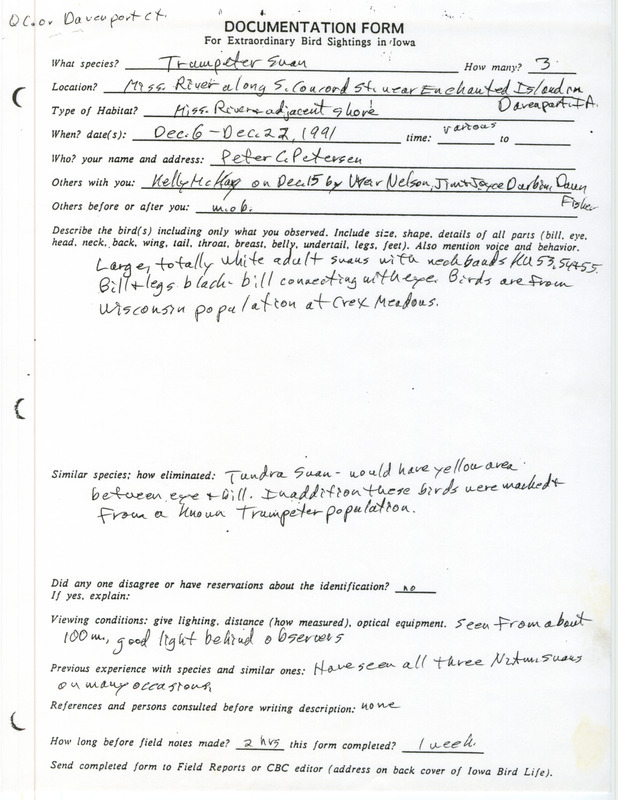 QC. or Davenport Ct.
DOCUMENTATION FORM
For Extraordinary Bird Sightings in Iowa
What species? Trumpeter Swan How many? 3
Location? Miss. River along S. Concord St. near Enchanted Island in
Davenport IA.
Type of Habitat? Miss. River + adjacent shore
When? date(s): Dec. 6 - Dec. 22, 1991 time: various to
Who? your name and address: Peter C. Petersen
Others with you: Kelly McKay on Dec. 15 by Nelson, Jim + Joyce Durbin, Dawn
Fisher
Others before or after you: m.o.b.
Describe the bird(s) including only what you observed. Include size, shape, details of all parts (bill, eye,
head, neck, back, wing, tail, throat, breast, belly, undertail, legs, feet). Also mention voice and behavior.
Large, totally white adult swans with neckbands KU 53, 54+55.
Bill + legs black - bill connecting with eye. Birds are from
Wisconsin population at Crex Meadows.
Similar species; how eliminated: Tundra Swan - would have yellow area
between eye + bill. In addition these birds were marked +
from a known Trumpeter population.
Did any one disagree or have reservations about the identification? no
If yes, explain:
Viewing conditions: give lighting, distance (how measured), optical equipment. Seen from about
100 m, good light behind observers
Previous experience with species and similar ones: Have seen all three swans
on many occasions.
References and persons consulted before writing description: none
How long before field notes made? 2 hrs this form completed? 1 week.
Send completed form to Field Reports or CBC editor (address on back cover of Iowa Bird Life).